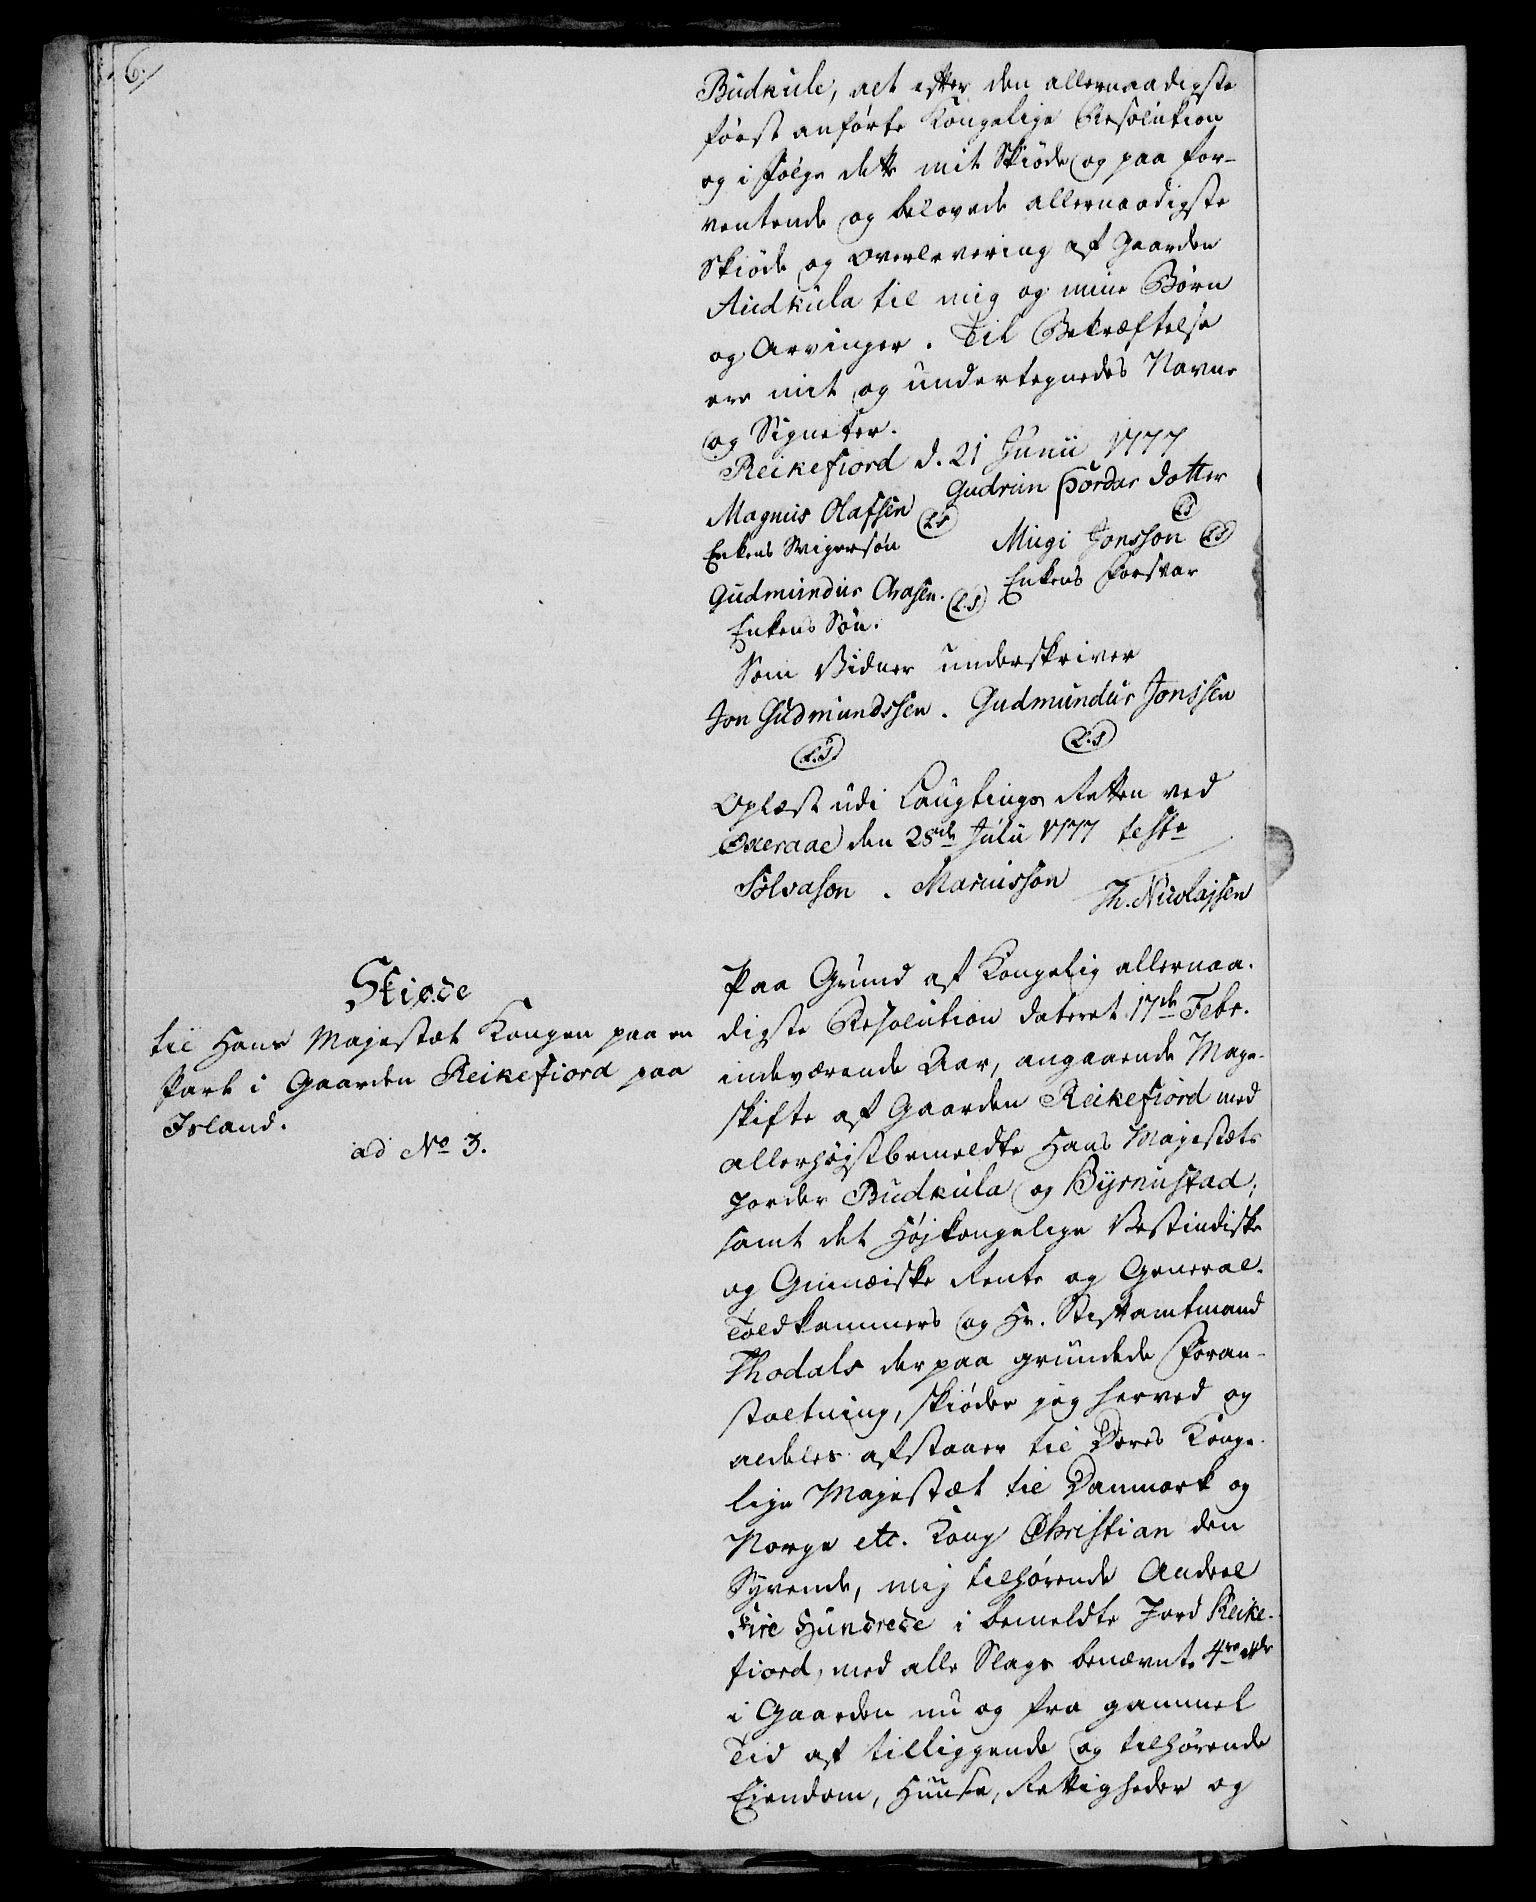 6.
Budkule, alt efter den allernaadigste
først anførte Kongelige Resolution
og i følge dette mit Skiøde og paa for-
ventende og belovede allernaadigste
Skiøde og Overlevering af Gaarden
Audkula til mig og mine Børn
og Arvinger. Til Bekræftelse
ere mit og undertegnedes Navne
og Signeter.
Reikefiord d. 21 Junii 1777
Gudrun Þordar dotter
Magnus Olafsen (LS) (LS)
Enkens Svigersøn Mugi Jonsson (LS)
Gudmundur Arasen. (L.S) Enkens Forsvar
Enkens Søn.
Som Vidner underskriver
Jon Gudmundssen. Gudmundur Jonssen
(L.S) (L.S)
Oplæst udi Laugtings Retten ved
Øxeraae den 28de Julii 1777 teste
Sölvason. Marusson Th. Nicolajsen
Skiøde
til Hans Majestæt Kongen paa en
Part i Gaarden Reikefiord paa
Island.
ad No 3.
Paa Grund af Kongelig allernaa-
digste Resolution dateret 17de Febr.
indeværende Aar, angaaende Mage-
skifte af Gaarden Reikefiord med
allerhøystbemeldte Hans Majestæts
Jorder Budkula og Byrnustad;
samt det Høykongelige Vestindiske
og Guinæiske Rente og General-
Toldkammers og Hr. Stiftamtmand
Thodals derpaa grundede Foran-
staltning, skiøder jeg herved og
aldeles afstaaer til Deres Konge-
lige Majestæt til Danmark og
Norge etc. Kong Christian den
Syvende, mig tilhørende Andeel
Fire Hundrede i bemeldte Jord Reike-
fiord, med alle Slags benævnte 4re
i Gaarden nu og fra gammel
Tid af tilliggende og tilhørende
Eiendom, Huuse, Rettigheder og